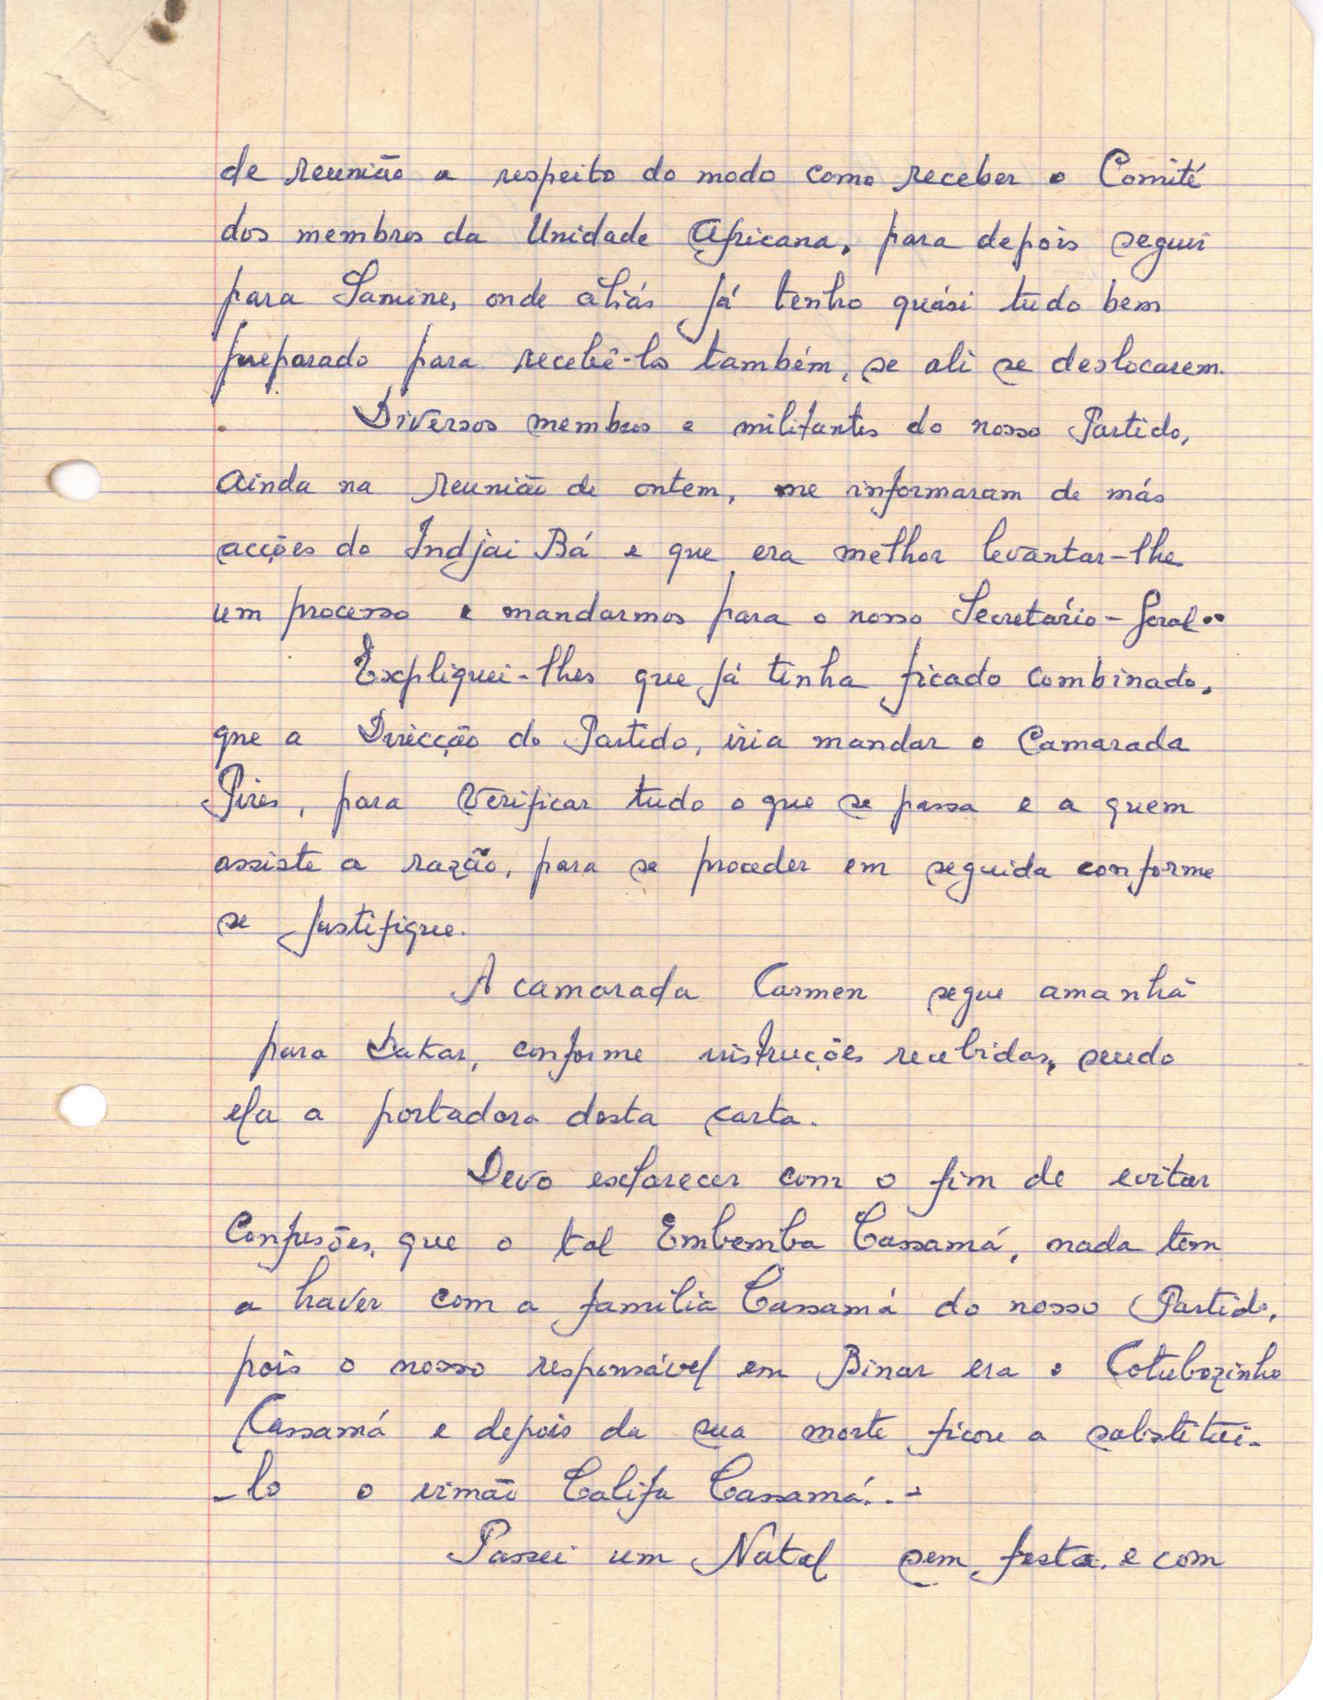 de reunião a respeito do modo como receber o Comité
dos membros da Unidade Africana, para depois seguir
para Samine, onde aliás já tenho quási tudo bem
preparado para recebê-los também, se ali se deslocarem.
Diversos membros e militantes do nosso Partido,
ainda na reunião de ontem, me informaram de más
acções do Indjai Bá e que era melhor levantar-lhe
um processo e mandarmos para o nosso Secretário-Geral..
Expliquei-lhes que já tinha ficado combinado,
que a Direcção do Partido, iria mandar o Camarada
Pires, para verificar tudo o que se passa e a quem
assiste a razão, para se proceder em seguida conforme
se justifique.
A camarada Carmen segue amanhã
para Dakar, conforme instruções recebidas, sendo
ela a portadora desta carta.
Devo esclarecer com o fim de evitar
Confusões, que o tal Embemba Cassamá, nada tem
a haver com a família Cassamá do nosso Partido,
pois o nosso responsável em Binar era o Cotubozinho
Cassamá e depois da sua morte ficou a substitui-
-lo o irmão Califa Cassamá..-
Passei um Natal sem festa e com